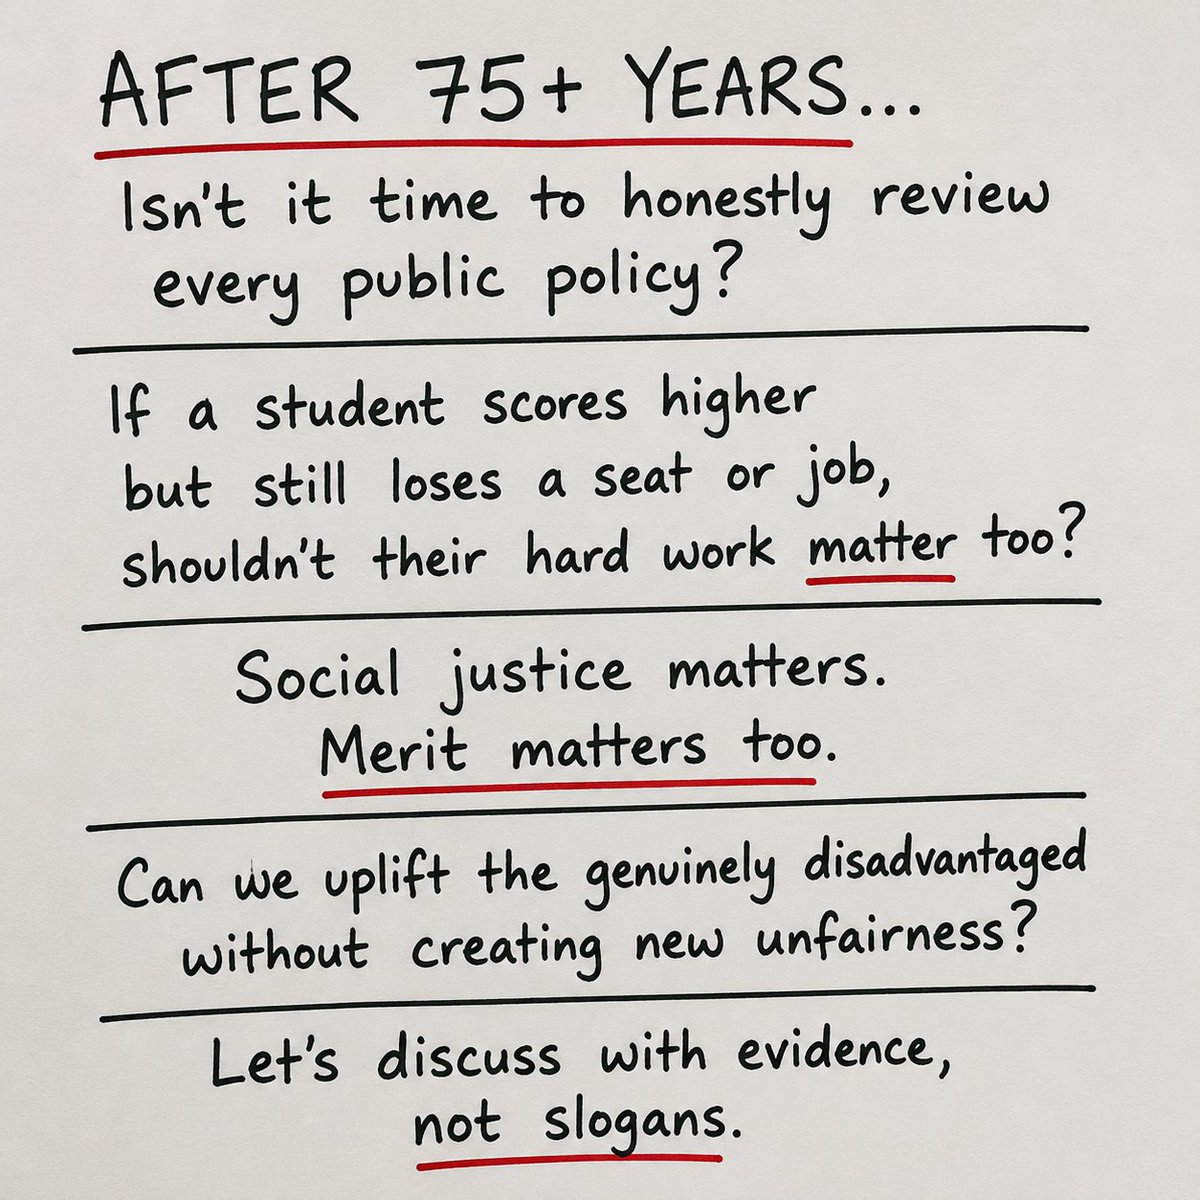 AFTER 75+ YEARS...
Isn't it time to honestly review
every public policy?
If a student scores higher
but still loses a seat or job,
shouldn't their hard work matter too?
Social justice matters.
Merit matters too.
Can we uplift the genuinely disadvantaged
without creating new unfairness?
Let's discuss with evidence,
not slogans.